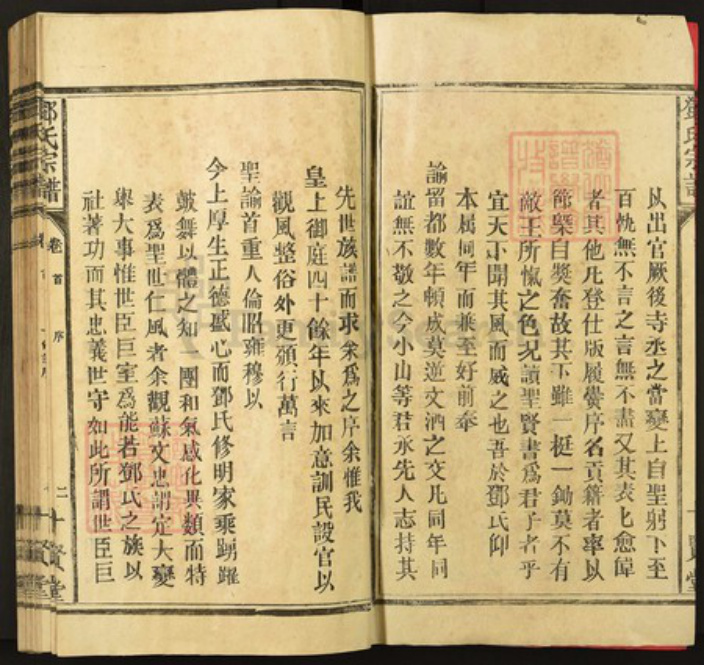 以出官厥後寺丞之當變上自聖躬下至
百執無不言之言無不盡又其表乞愈偉
者其他凡登仕版履黌序名貢籍者率以
節槩自奬奮故其下雖一挺一鋤莫不有
敵王所愾之色况讀聖賢書爲君子者乎
宜天下聞其風而威之也吾於鄧氏仰
本屆同年而兼至好前奉
諭留都數年頓成莫逆文酒之交凡同年同
誼無不敬之今小山等君承先人志持其
先世族譜而求爲之序余惟我
皇上御庭四十餘年以來加意訓民設官以
觀風整俗外更頒行萬言
聖諭首重人倫昭雍穆以
今上厚生正德盛心而鄧氏修明家乘踴躍
皷舞以體之知一團和氣感化異類而特
表爲聖世仁風者余觀蘇文忠謂定大變
舉大事惟世臣巨室爲能若鄧氏之族以
社著功而其忠義世守如此所謂世臣巨
鄧氏宗譜
卷首
序
二
賢堂